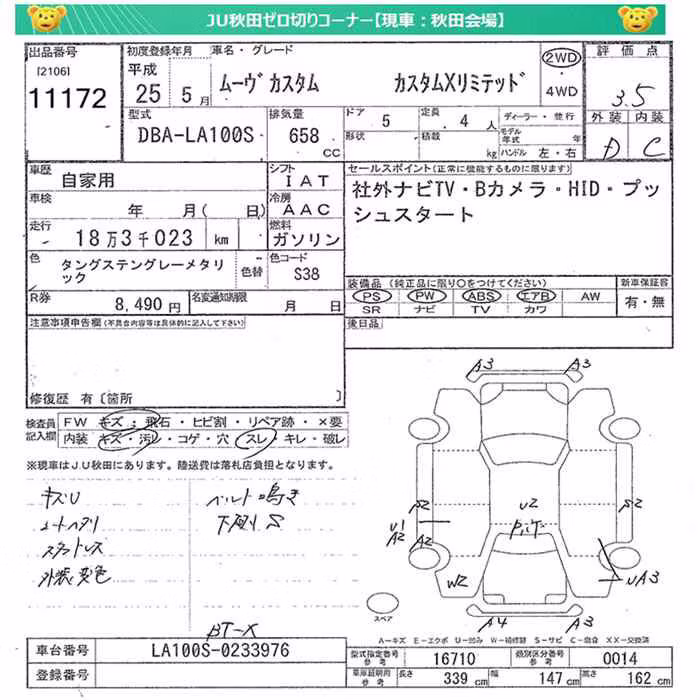 JU秋田ゼロ切りコーナー【現車：秋田会場】
出品番号
[2106]
11172
初度登録年月
平成
25 5月
車名・グレード
ムーヴ カスタム カスタムXリミテッド
2WD
・
4WD
評価点
3.5
外装 内装
D C
型式
DBA-LA100S
排気量
658
CC
ドア 5
定員 4 人
形状
積載 kg
ディーラー・並行
モデル年式 年
ハンドル 左・右
車歴
自家用
シフト
IAT
車検
年 月( 日)
冷房
AAC
走行
18万3千023 km
燃料
ガソリン
色
タングステングレーメタリック
色替
色コード
S38
R券
8,490円
名変通知期限
月 日
セールスポイント(正常に機能するものに限ります)
社外ナビTV・Bカメラ・HID・プッシュスタート
装備品 (純正品に限り○をつけてください)
PS PW ABS エアB AW
SR ナビ TV カワ
新車保証書
有・無
後日品
注意事項申告欄(不具合内容等は具体的に記入して下さい)
修復歴 有〔箇所 〕
検査員記入欄
FW キズ・飛石・ヒビ割・リペア跡・×要
内装 キズ・汚レ・コゲ・穴 スレ・キレ・破レ
※現車はJU秋田にあります。陸送費は落札店負担となります。
キズU
シートヘタリ
スタットレス
外装変色
ベルト鳴き
下廻りS
A3 A3
S2
U1
A2
A2
U2
S2
W2
UA3
A4 A3
スペア
A－キズ E－エクボ U－凹み W－補修跡 S－サビ C－腐食 XX－交換済
車台番号
LA100S-0233976
登録番号
型式指定番号
参考
16710
類別区分番号
参考
0014
車庫証明用
参考
長さ 339 cm
幅 147 cm
高さ 162 cm